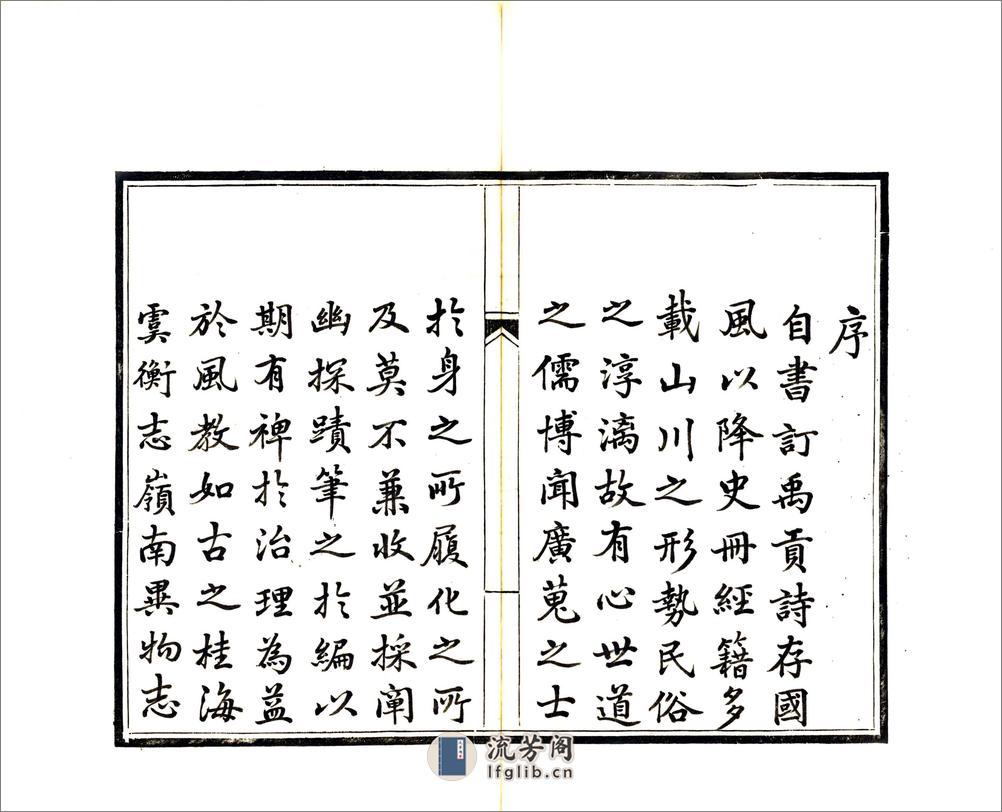 序
自書訂禹貢詩存國
風以降史冊經籍多
載山川之形勢民俗
之淳漓故有心世道
之儒博聞廣蒐之士
於身之所履化之所
及莫不兼收並採闡
幽探賾筆之於編以
期有裨於治理為益
於風教如古之桂海
虞衡志嶺南異物志
流芳阁
lfglib.cn